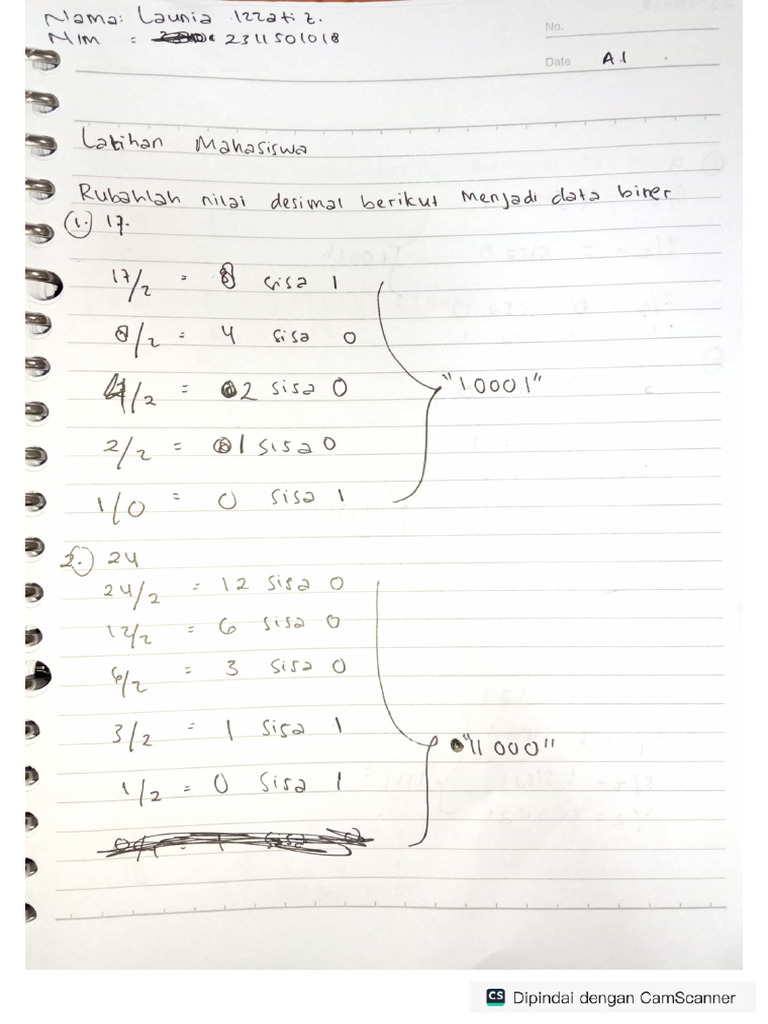 Nama: Launia Izzati Z.
NIM : 2311501018
No.
Date A.1
Latihan Mahasiswa
Rubahlah nilai desimal berikut menjadi data biner
1. 17.
17/2 = 8 sisa 1
8/2 = 4 sisa 0
4/2 = 2 sisa 0
"10001"
2/2 = 1 sisa 0
1/0 = 0 sisa 1
2. 24
24/2 = 12 sisa 0
12/2 = 6 sisa 0
6/2 = 3 sisa 0
3/2 = 1 sisa 1
"11000"
1/2 = 0 sisa 1
CS Dipindai dengan CamScanner